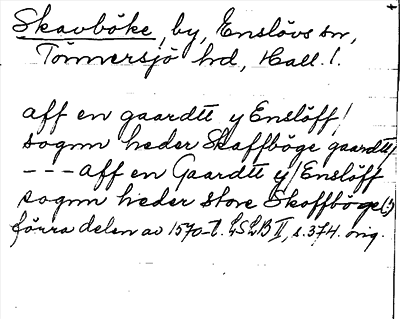 Skavböke, by, Enslövs sn,
Tönnersjö hd, Hall. l.
aff en gaardtt y Enslöff/
sognn heder Skaffböge gaardtt/
--- aff en Gaardtt y/Enslöff
sognn heder store Skoffböge(:)
förra delen av 1570-t. LSLB II, s.374. orig.